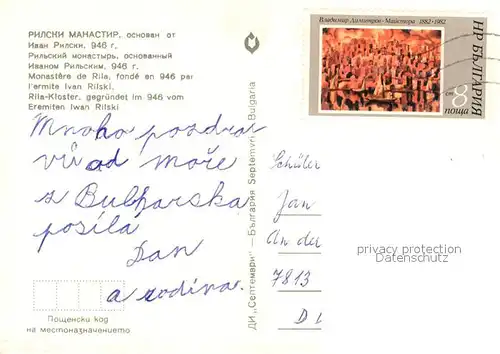 РИЛСКИ МАНАСТИР, основан от
Иван Рилски, 946 г.
Рильский монастырь, основанный
Иваном Рильским, 946 г.
Monastère de Rila, fondé en 946 par
l'ermite Ivan Rilski.
Rila-Kloster, gegründet im 946 vom
Eremiten Ivan Rilski
Mnoho pozdra
vů od moře
z Bulharska
posílá
Jan
a rodina.
Пощенски код
на местоназначението
ДИ „Септември" — България Septemvri Bulgaria
Владимир Димитров-Майстора 1882-1982
НР БЪЛГАРИЯ
ст 8
поща
Schüler
Jan
An der
7813
D
privacy protection
Datenschutz